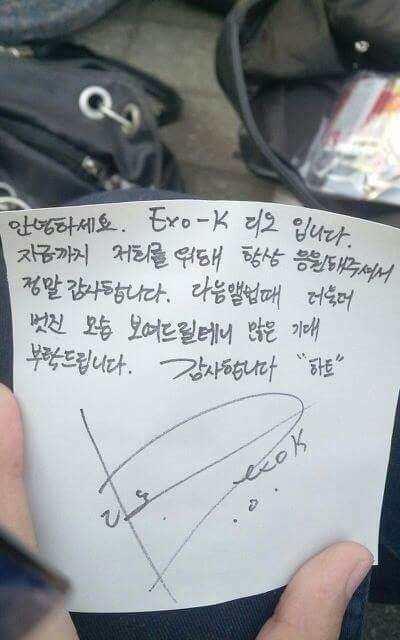 안녕하세요. Exo-K 디오 입니다.
지금까지 저희를 위해 항상 응원해주셔서
정말 감사합니다. 다음앨범때 더욱더
멋진 모습 보여드릴테니 많은 기대
부탁드립니다. 감사합니다 "하트"
exoK
D.O.